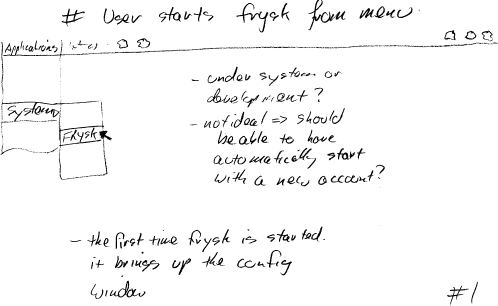 # User starts frysk from menu
Applications
System
Frysk
- under system or
development?
- not ideal => should
be able to have
automatically start
with a new account?
- the first time frysk is started.
it brings up the config
window
#1